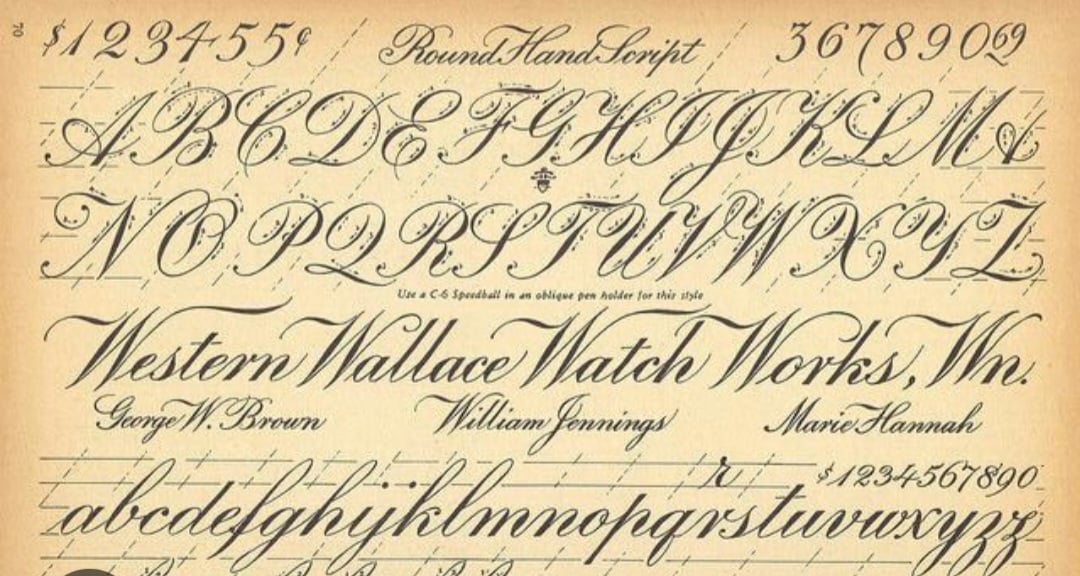 70
$1234455¢ Round Hand Script 367890 69
ABCDEFGHIJKLM&
NOPQRSTUVWXYZ
Use a C-6 Speedball in an oblique pen holder for this style
Western Wallace Watch Works, Wn.
George W. Brown William Jennings Marie Hannah
r $1234567890
abcdefghijklmnopqrstuvwxyzz